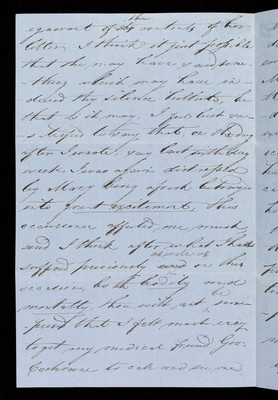 the
ignorant of the contents of her
letter. I think it just possible
that she may have said some
-thing which may have in-
duced thy silence hitherto, be
that as it may. I feel
to say that on the day
after I wrote, say last
week I was again distressed
by Mary being afresh betrayed
into great excitement, this
occurrence affected me much
and I think after what I had
suffered previously as well as on this
occasion, both bodily and
mentally, thou wilt not be sur-
-prised that I felt most easy
to get my medical friend Geo:
Cochrane to call and see me